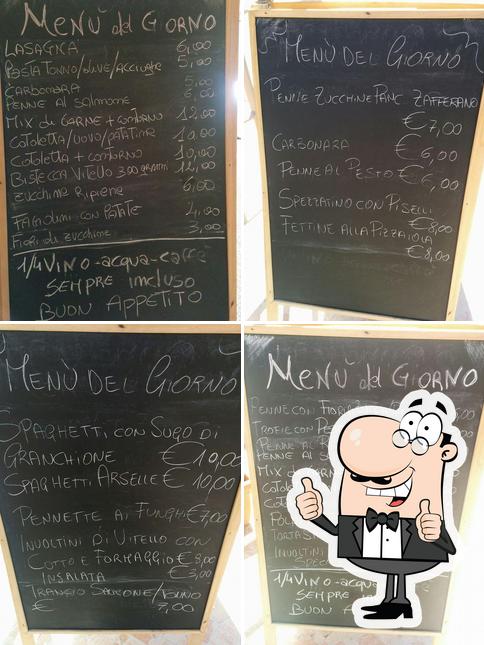 MENÙ del GIORNO
LASAGNA 6,00
PASTA TONNO/OLIVE/ACCIUGHE 5,00
CARBONARA 5,00
PENNE AL SALMONE 6,00
MIX di CARNE + CONTORNO 12,00
COTOLETTA/UOVO/PATATINE 10,00
COTOLETTA + CONTORNO 10,00
BISTECCA VITELLO 300 grammi 12,00
ZUCCHINE RIPIENE 6,00
FAGIOLINI CON PATATE 4,00
FIORI di ZUCCHINE 3,00
1/4 VINO - acqua - caffè
SEMPRE INCLUSO
BUON APPETITO
MENÙ DEL GIORNO
PENNE ZUCCHINE PANC. ZAFFERANO
€ 7,00
CARBONARA € 6,00
PENNE AL PESTO € 6,00
SPEZZATINO CON PISELLI
€ 8,00
FETTINE ALLA PIZZAIOLA
€ 8,00
MENÙ DEL GIORNO
SPAGHETTI CON SUGO DI
GRANCHIONE € 10,00
SPAGHETTI ARSELLE € 10,00
PENNETTE AI FUNGHI € 7,00
INVOLTINI DI VITELLO CON
COTTO E FORMAGGIO € 8,00
INSALATA € 3,00
TRANCIO SALMONE/TONNO
€ 7,00
MENÙ del GIORNO
PENNE CON
TROFIE CON
PENNE AL
PENNE AL
MIX di
INVOLTINI
1/4 VINO - acqua
SEMPRE
BUON